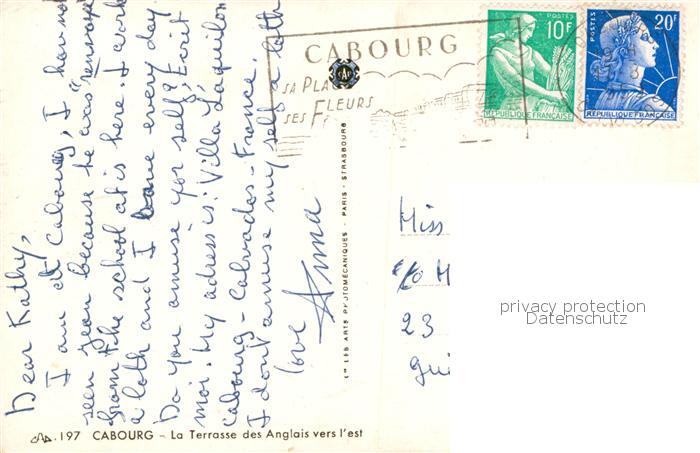 Dear Kathy,
I am at Cabourg, I have not
seen Jean because he was "renvoyé"
from the school at is here. I work
a loth and I bave every day
Do you amuse yor self? Ecrit
moi. My adress is: Villa L'aquilon
Cabourg - Calvados - France.
I dont amuse my self a loth
love Anna
CABOURG
SA PLAGE
SES FLEURS
CAP
POSTES
10F
REPUBLIQUE FRANÇAISE
POSTES
20F
REPUBLIQUE FRANÇAISE
LES ARTS PHOTOMÉCANIQUES - PARIS - STRASBOURG
Miss
c/o M
23
privacy protection
Datenschutz
CAP. 197 CABOURG - La Terrasse des Anglais vers l'est